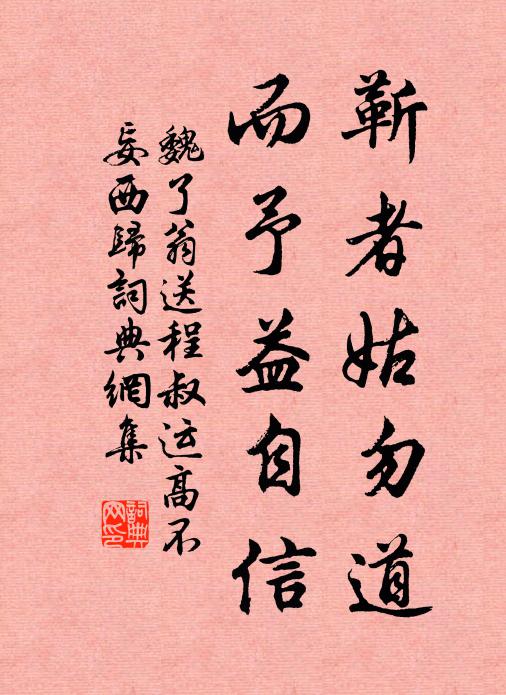 靳者姑勿道
而予益自信
魏了翁送程叔运高不
妄西歸詞典網集
詞典網印